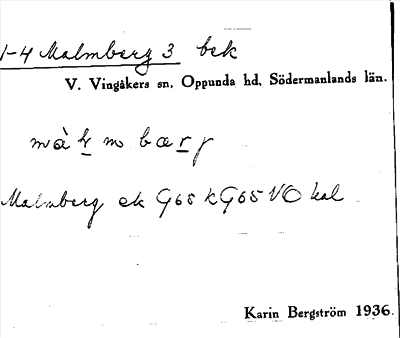 1-4 Malmberg 3 bek
V. Vingåkers sn, Oppunda hd, Södermanlands län.
Malmberg ek G65 KG65 VO kal
Karin Bergström 1936.